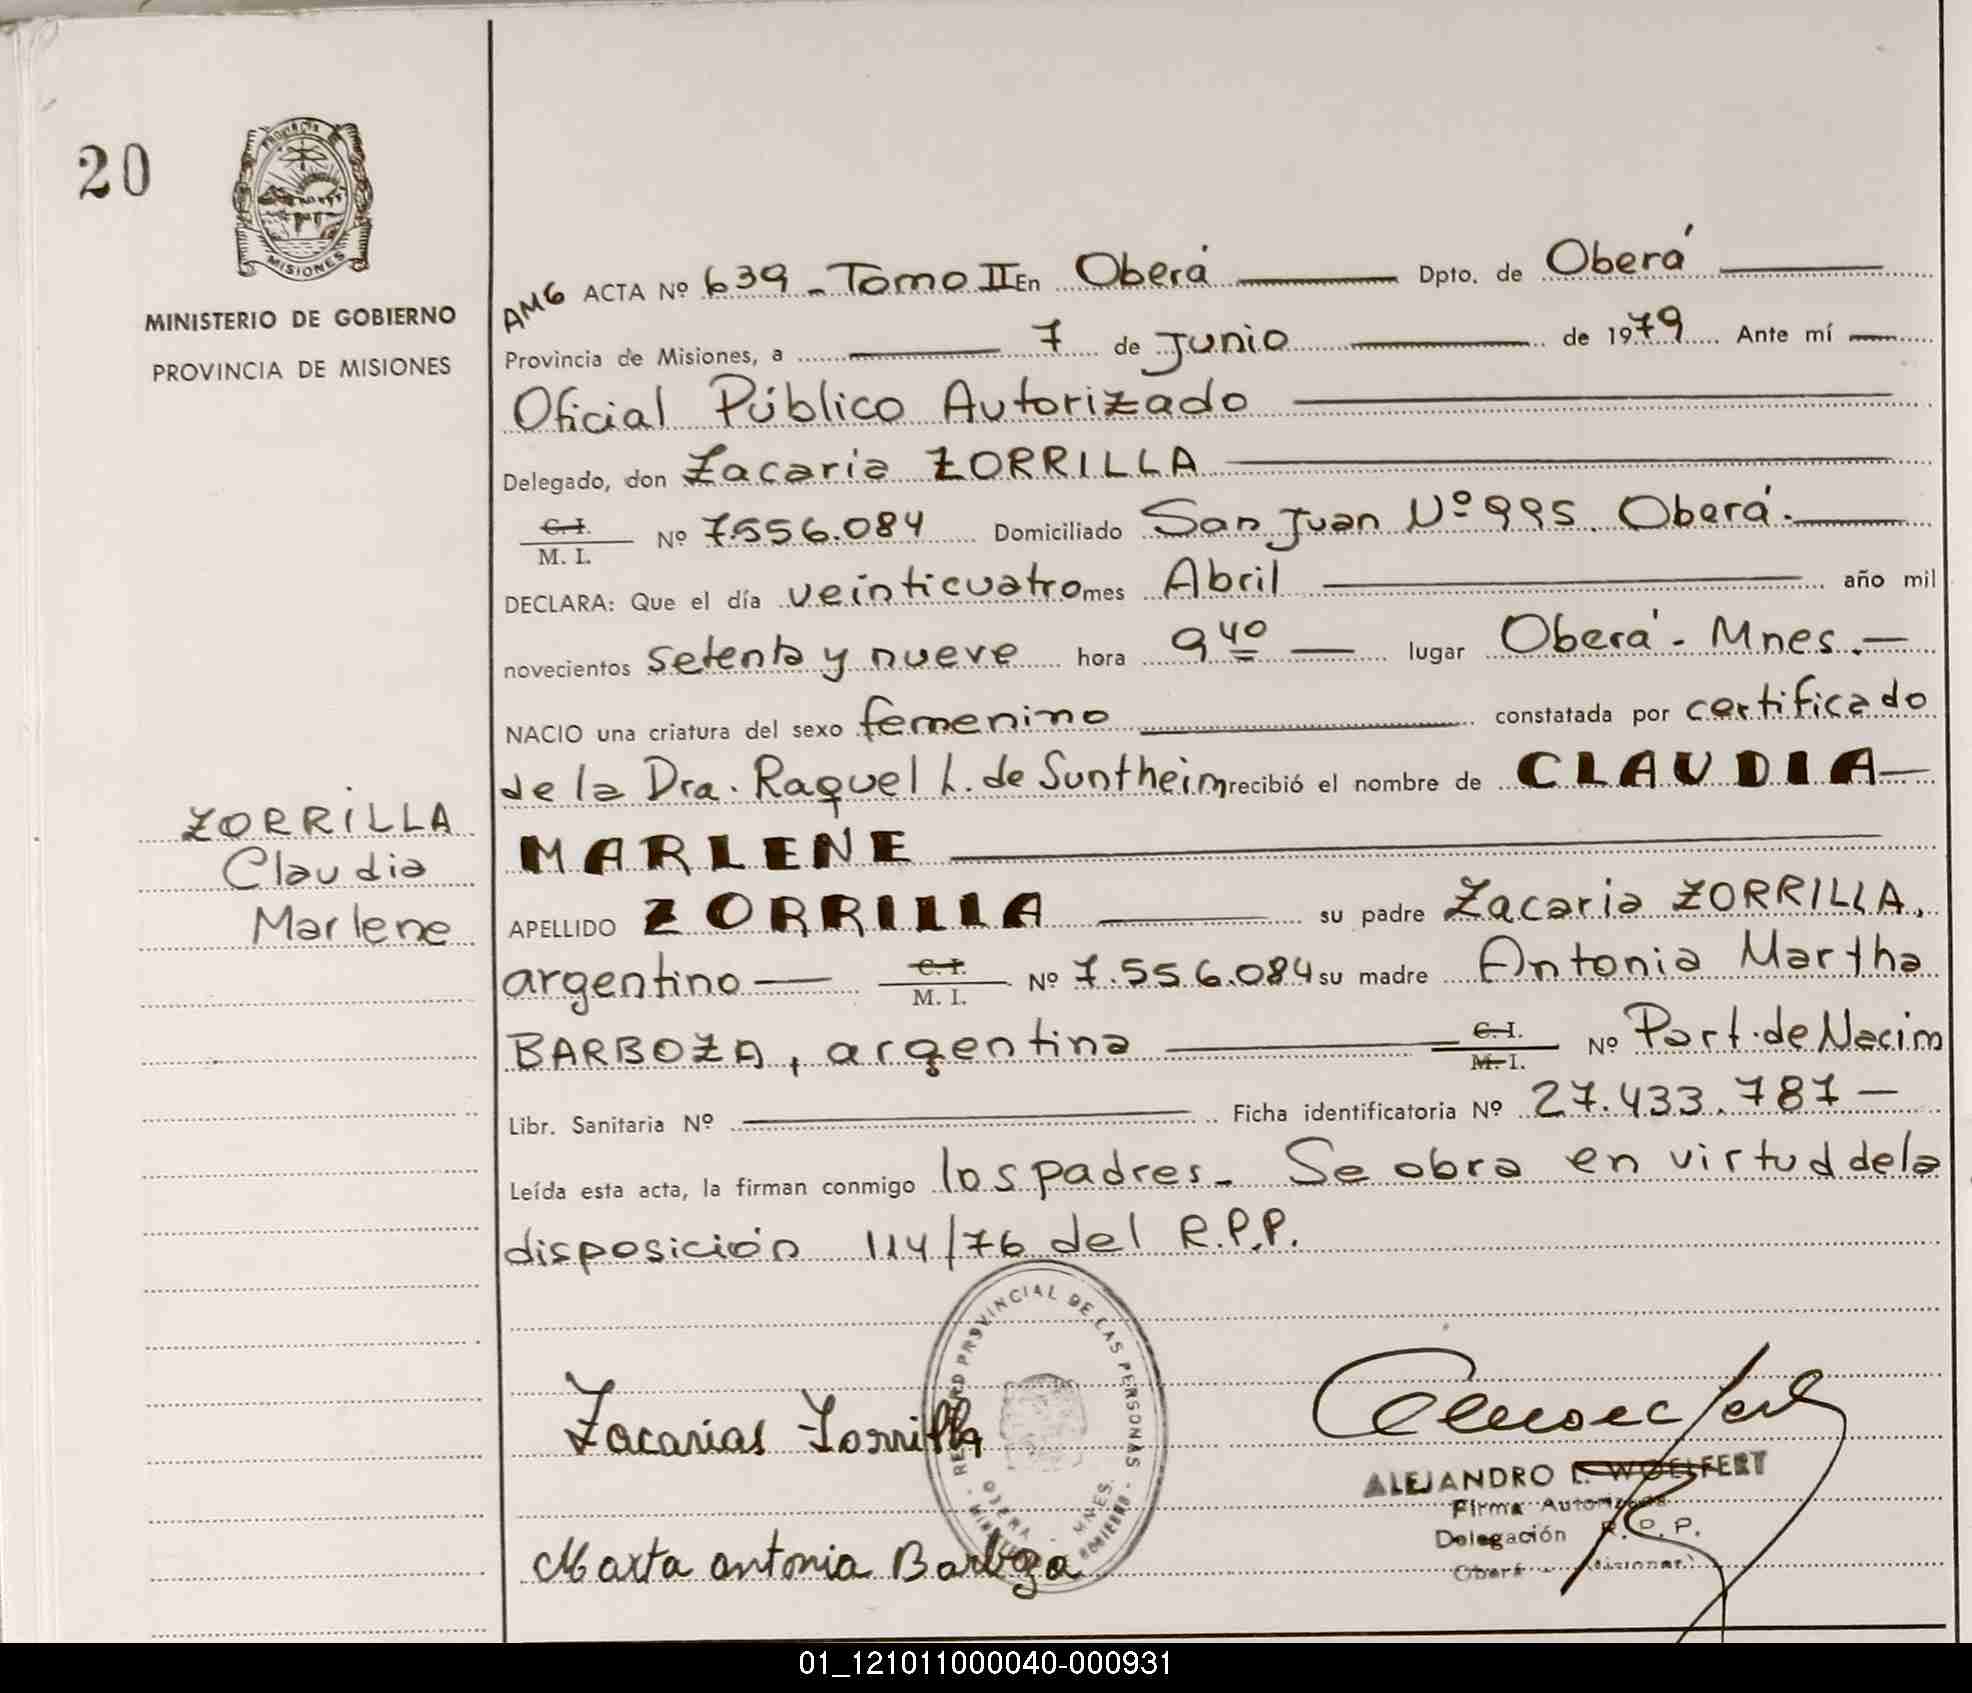 20
PROVINCIA
MISIONES
MINISTERIO DE GOBIERNO
PROVINCIA DE MISIONES
ZORRILLA
Claudia
Marlene
AMG ACTA Nº 639 - Tomo II En Oberá Dpto. de Oberá
Provincia de Misiones, a 7 de Junio de 1979 Ante mí
Oficial Público Autorizado
Delegado, don Zacaria ZORRILLA
C. I. / M. I. Nº 7.556.084 Domiciliado San Juan Nº 995. Oberá.
DECLARA: Que el día veinticuatro mes Abril año mil
novecientos setenta y nueve hora 9 40 lugar Oberá - Mnes.
NACIO una criatura del sexo femenino constatada por certificado
de la Dra. Raquel L. de Suntheim recibió el nombre de CLAUDIA
MARLENE
APELLIDO ZORRILLA su padre Zacaria ZORRILLA,
argentino C. I. / M. I. Nº 7.556.084 su madre Antonia Martha
BARBOZA, argentina C. I. / M. I. Nº Part. de Nacim
Libr. Sanitaria Nº Ficha identificatoria Nº 27.433.787
Leída esta acta, la firman conmigo los padres. Se obra en virtud de la
disposición 114/76 del R.P.P.
REGISTRO PROVINCIAL DE LAS PERSONAS
OBERA MNES.
Zacarias Zorrilla
ALEJANDRO L. WOELFERT
Firma Autorizada
Delegación R. P. P.
Oberá - (Misiones)
Marta antonia Barboza
01_121011000040-000931